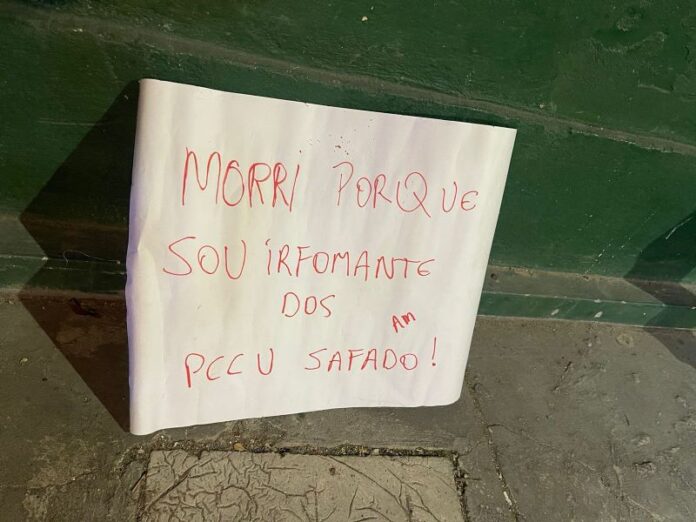 MORRI PORIQUE
SOU IRFOMANTE
DOS
AM
PCCU SAFADO!